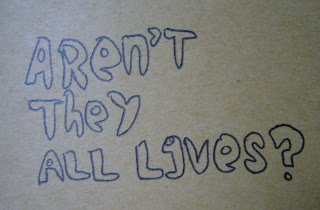 Aren't
They
ALL Lives?